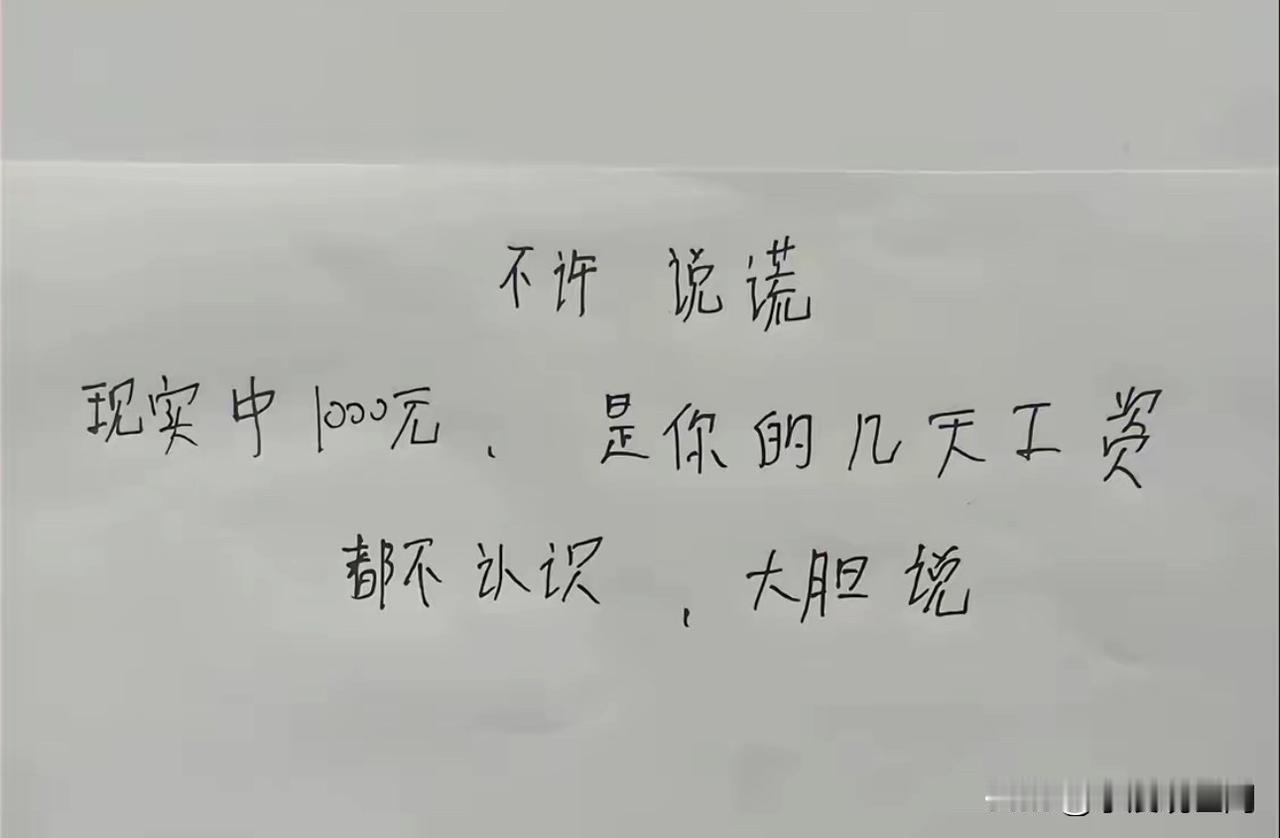 不许 说谎
现实中1000元, 是你的几天工资
都不认识, 大胆说